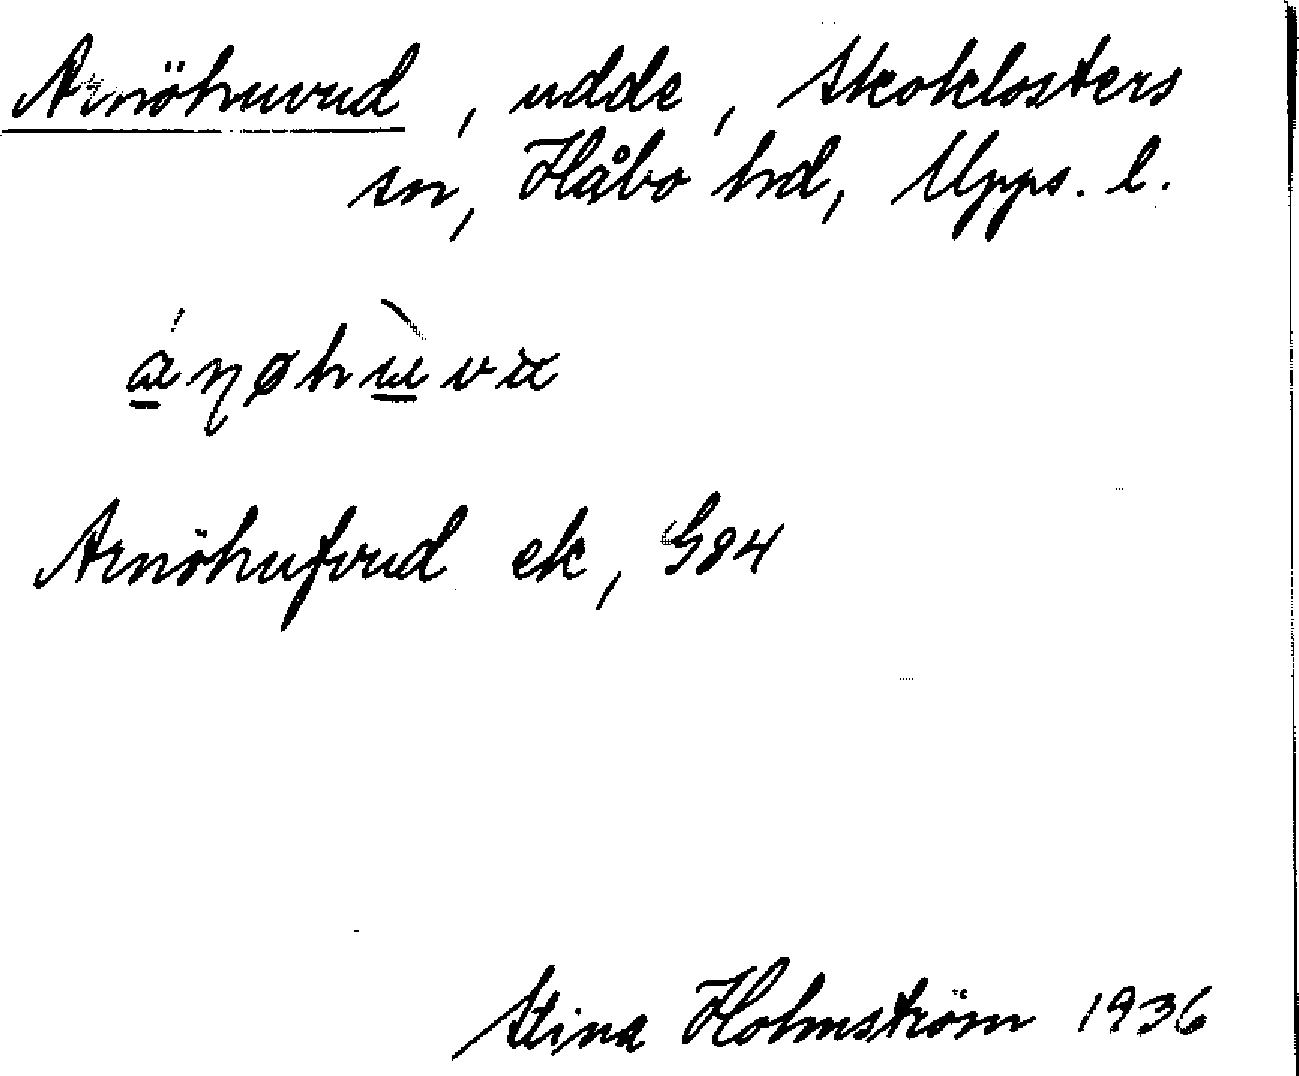 Arnöhuvud, udde, Skoklosters
sn, Håbo hd, Upps. l.
Arnöhufvud ek, G84
Stina Holmström 1936